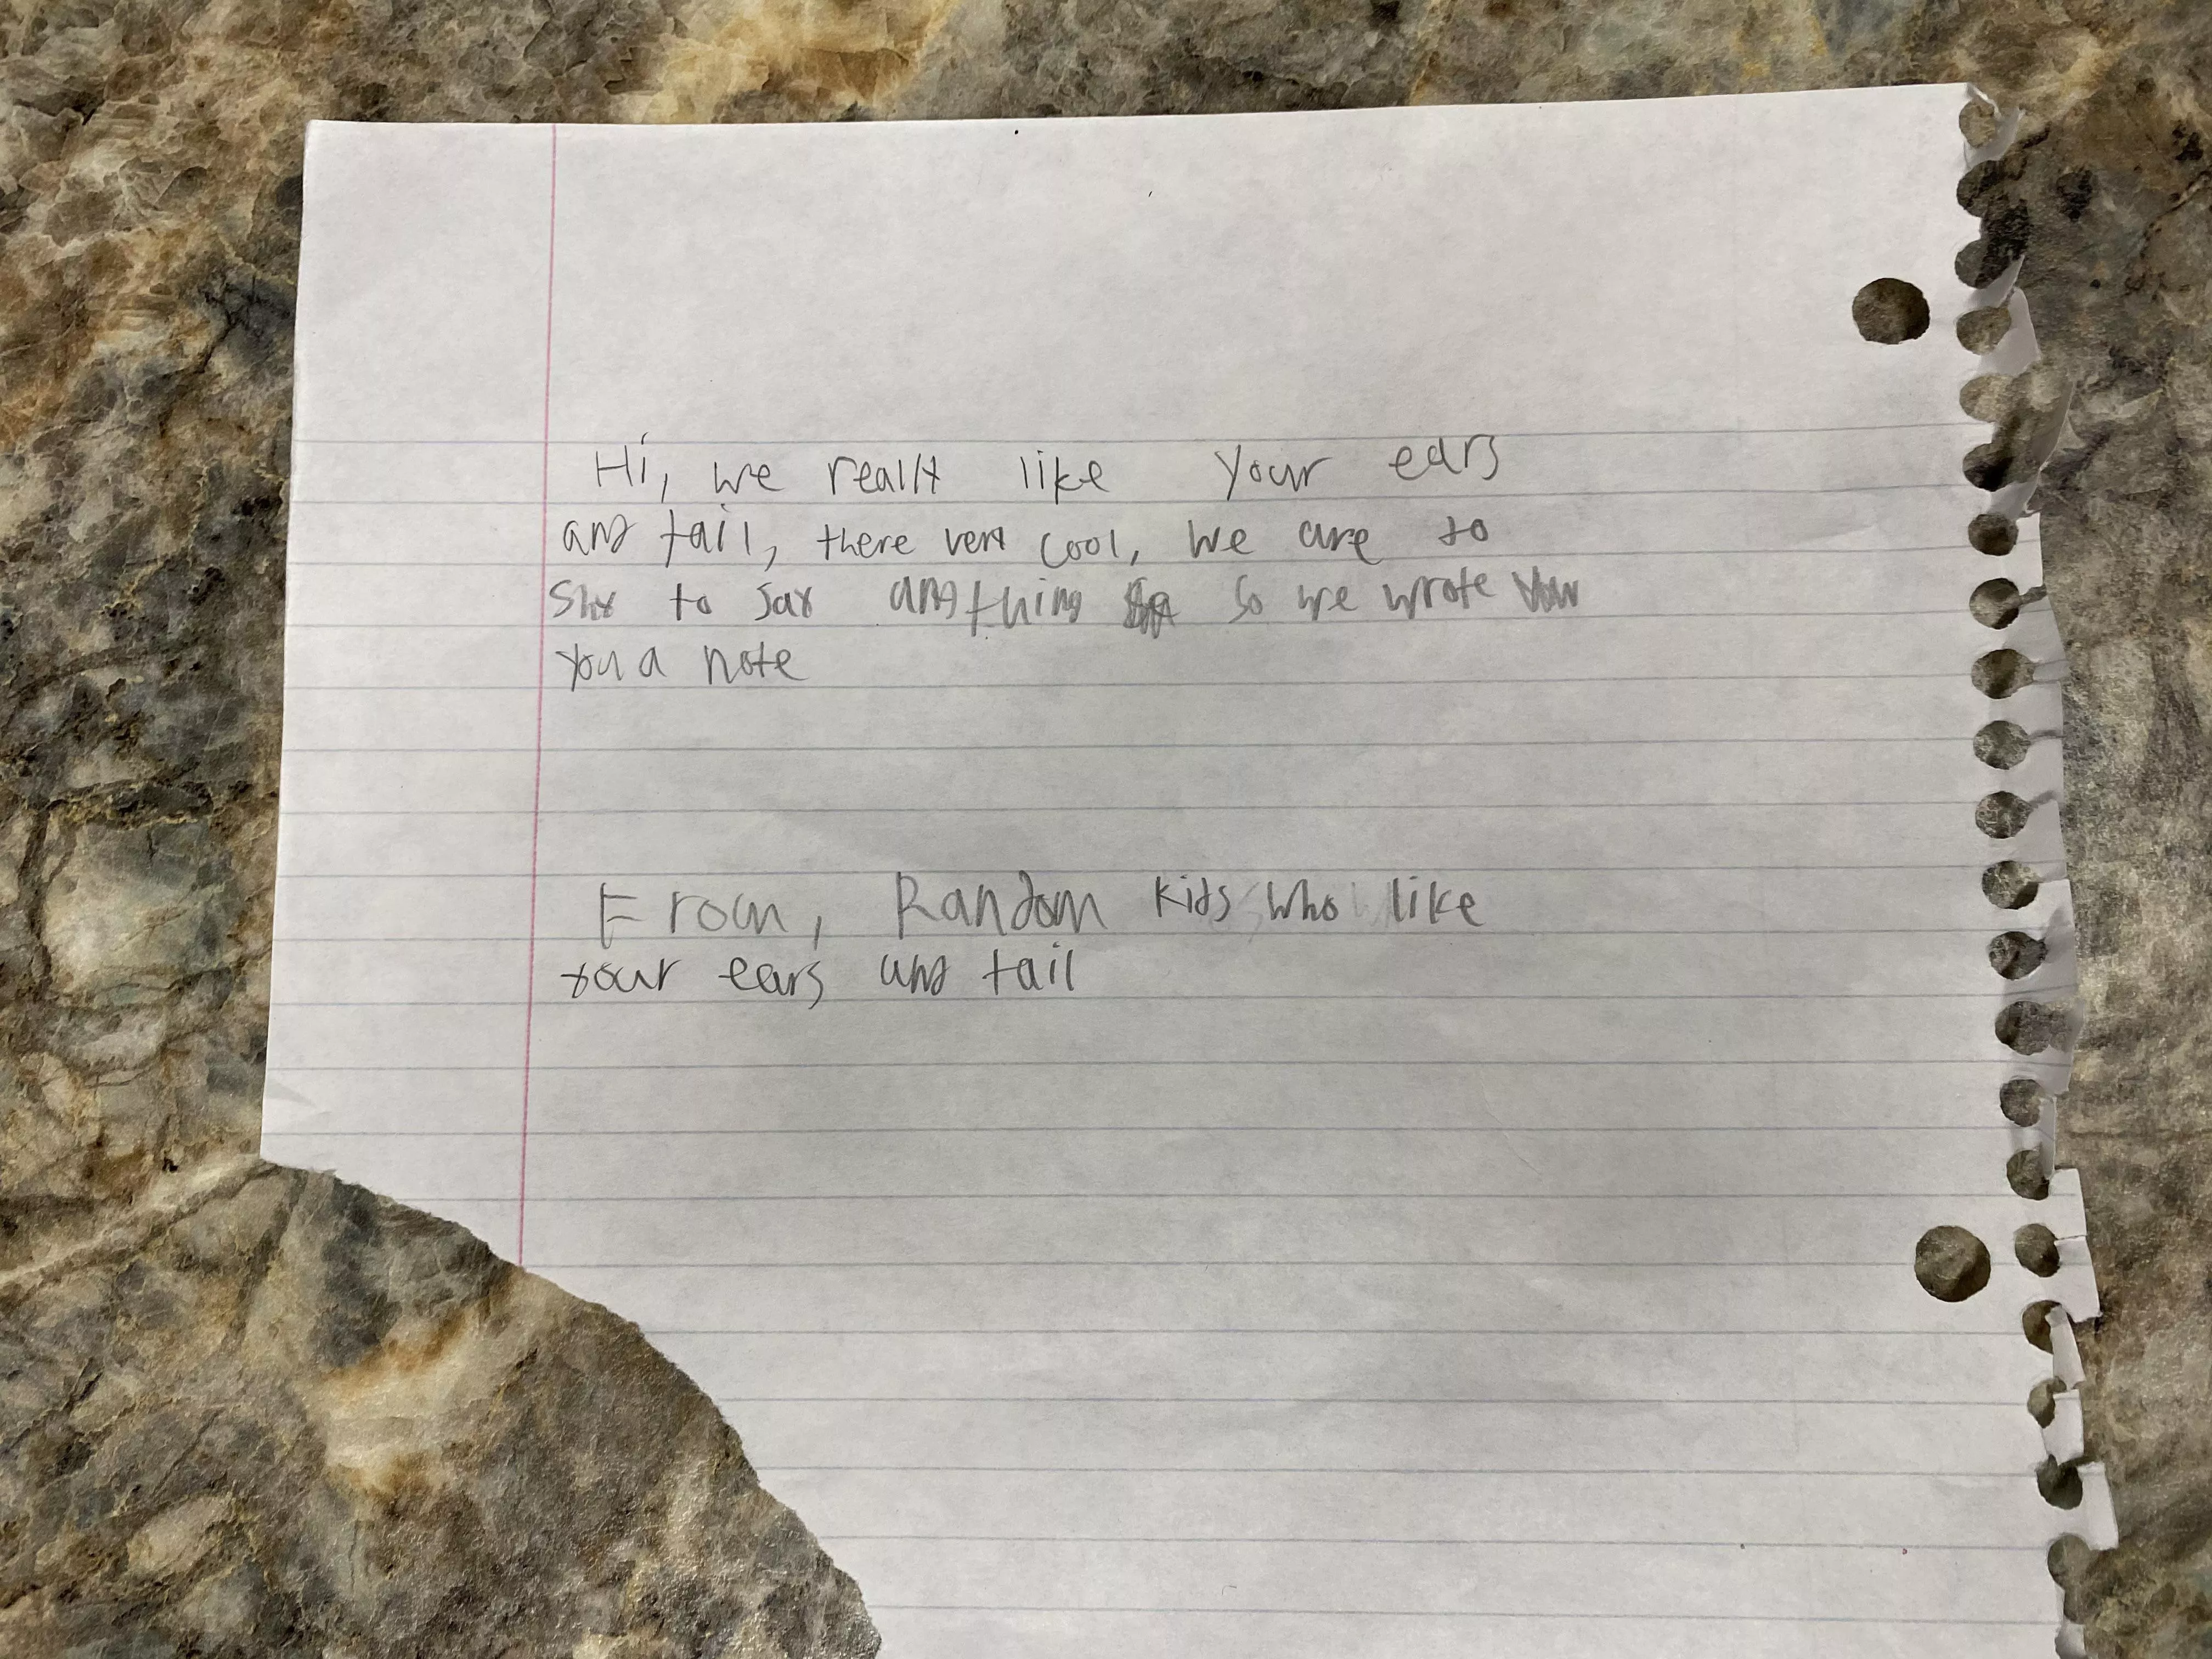 Hi, we really like your ears
and tail, there very cool, we are to
shy to say anything so we wrote
you a note
From, Random kids who like
your ears and tail